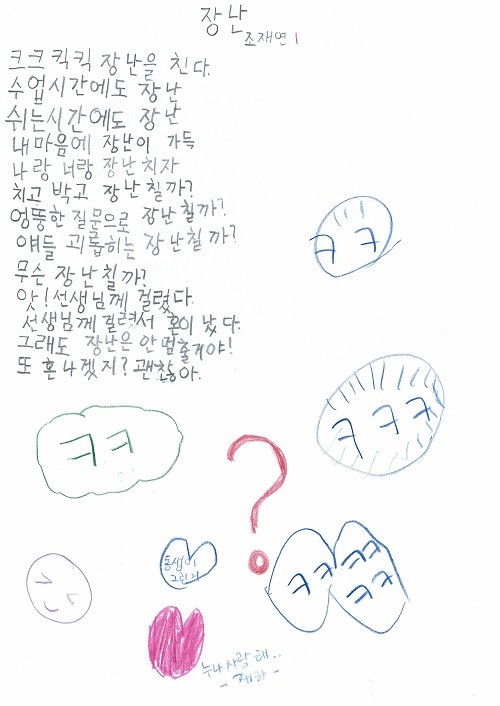 장난
조재연
크크킥킥 장난을 친다.
수업시간에도 장난
쉬는시간에도 장난
내마음에 장난이 가득
나랑 너랑 장난치자
치고 박고 장난칠까?
엉뚱한 질문으로 장난칠까?
얘들 괴롭히는 장난칠까?
무슨 장난칠까?
앗! 선생님께 걸렸다.
선생님께 걸렷서 혼이 났다.
그래도 장난은 안멈출거야!
또 혼나겠지? 괜찮아.
ㅋㅋ
ㅋㅋㅋ
ㅋㅋ
?
동생이
그린거
ㅋㅋ ㅋㅋ
ㅋㅋ
누나 사랑해..
- 재하 -